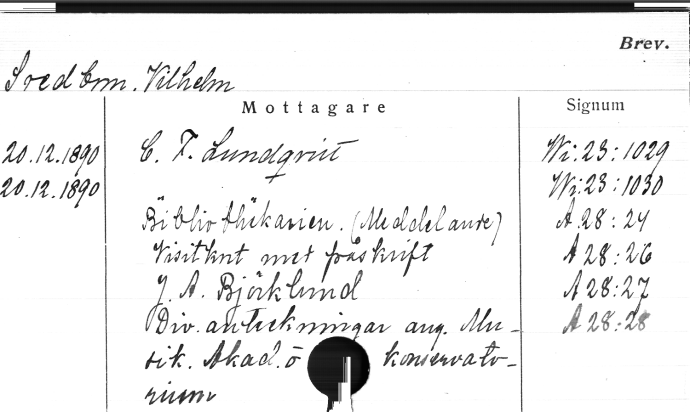 Brev.
Svedbom. Vilhelm
Mottagare Signum
20.12.1890 C. F. Lundqvist Wi:23:1029
20.12.1890 Wi:23:1030
Bibliothekarien. (Meddelande) A 28:24
Visitkort med påskrift A 28:26
J. A. Björklund A 28:27
Div. anteckningar ang. Mu- A 28:28
sik. Akad. o konservato-
rium